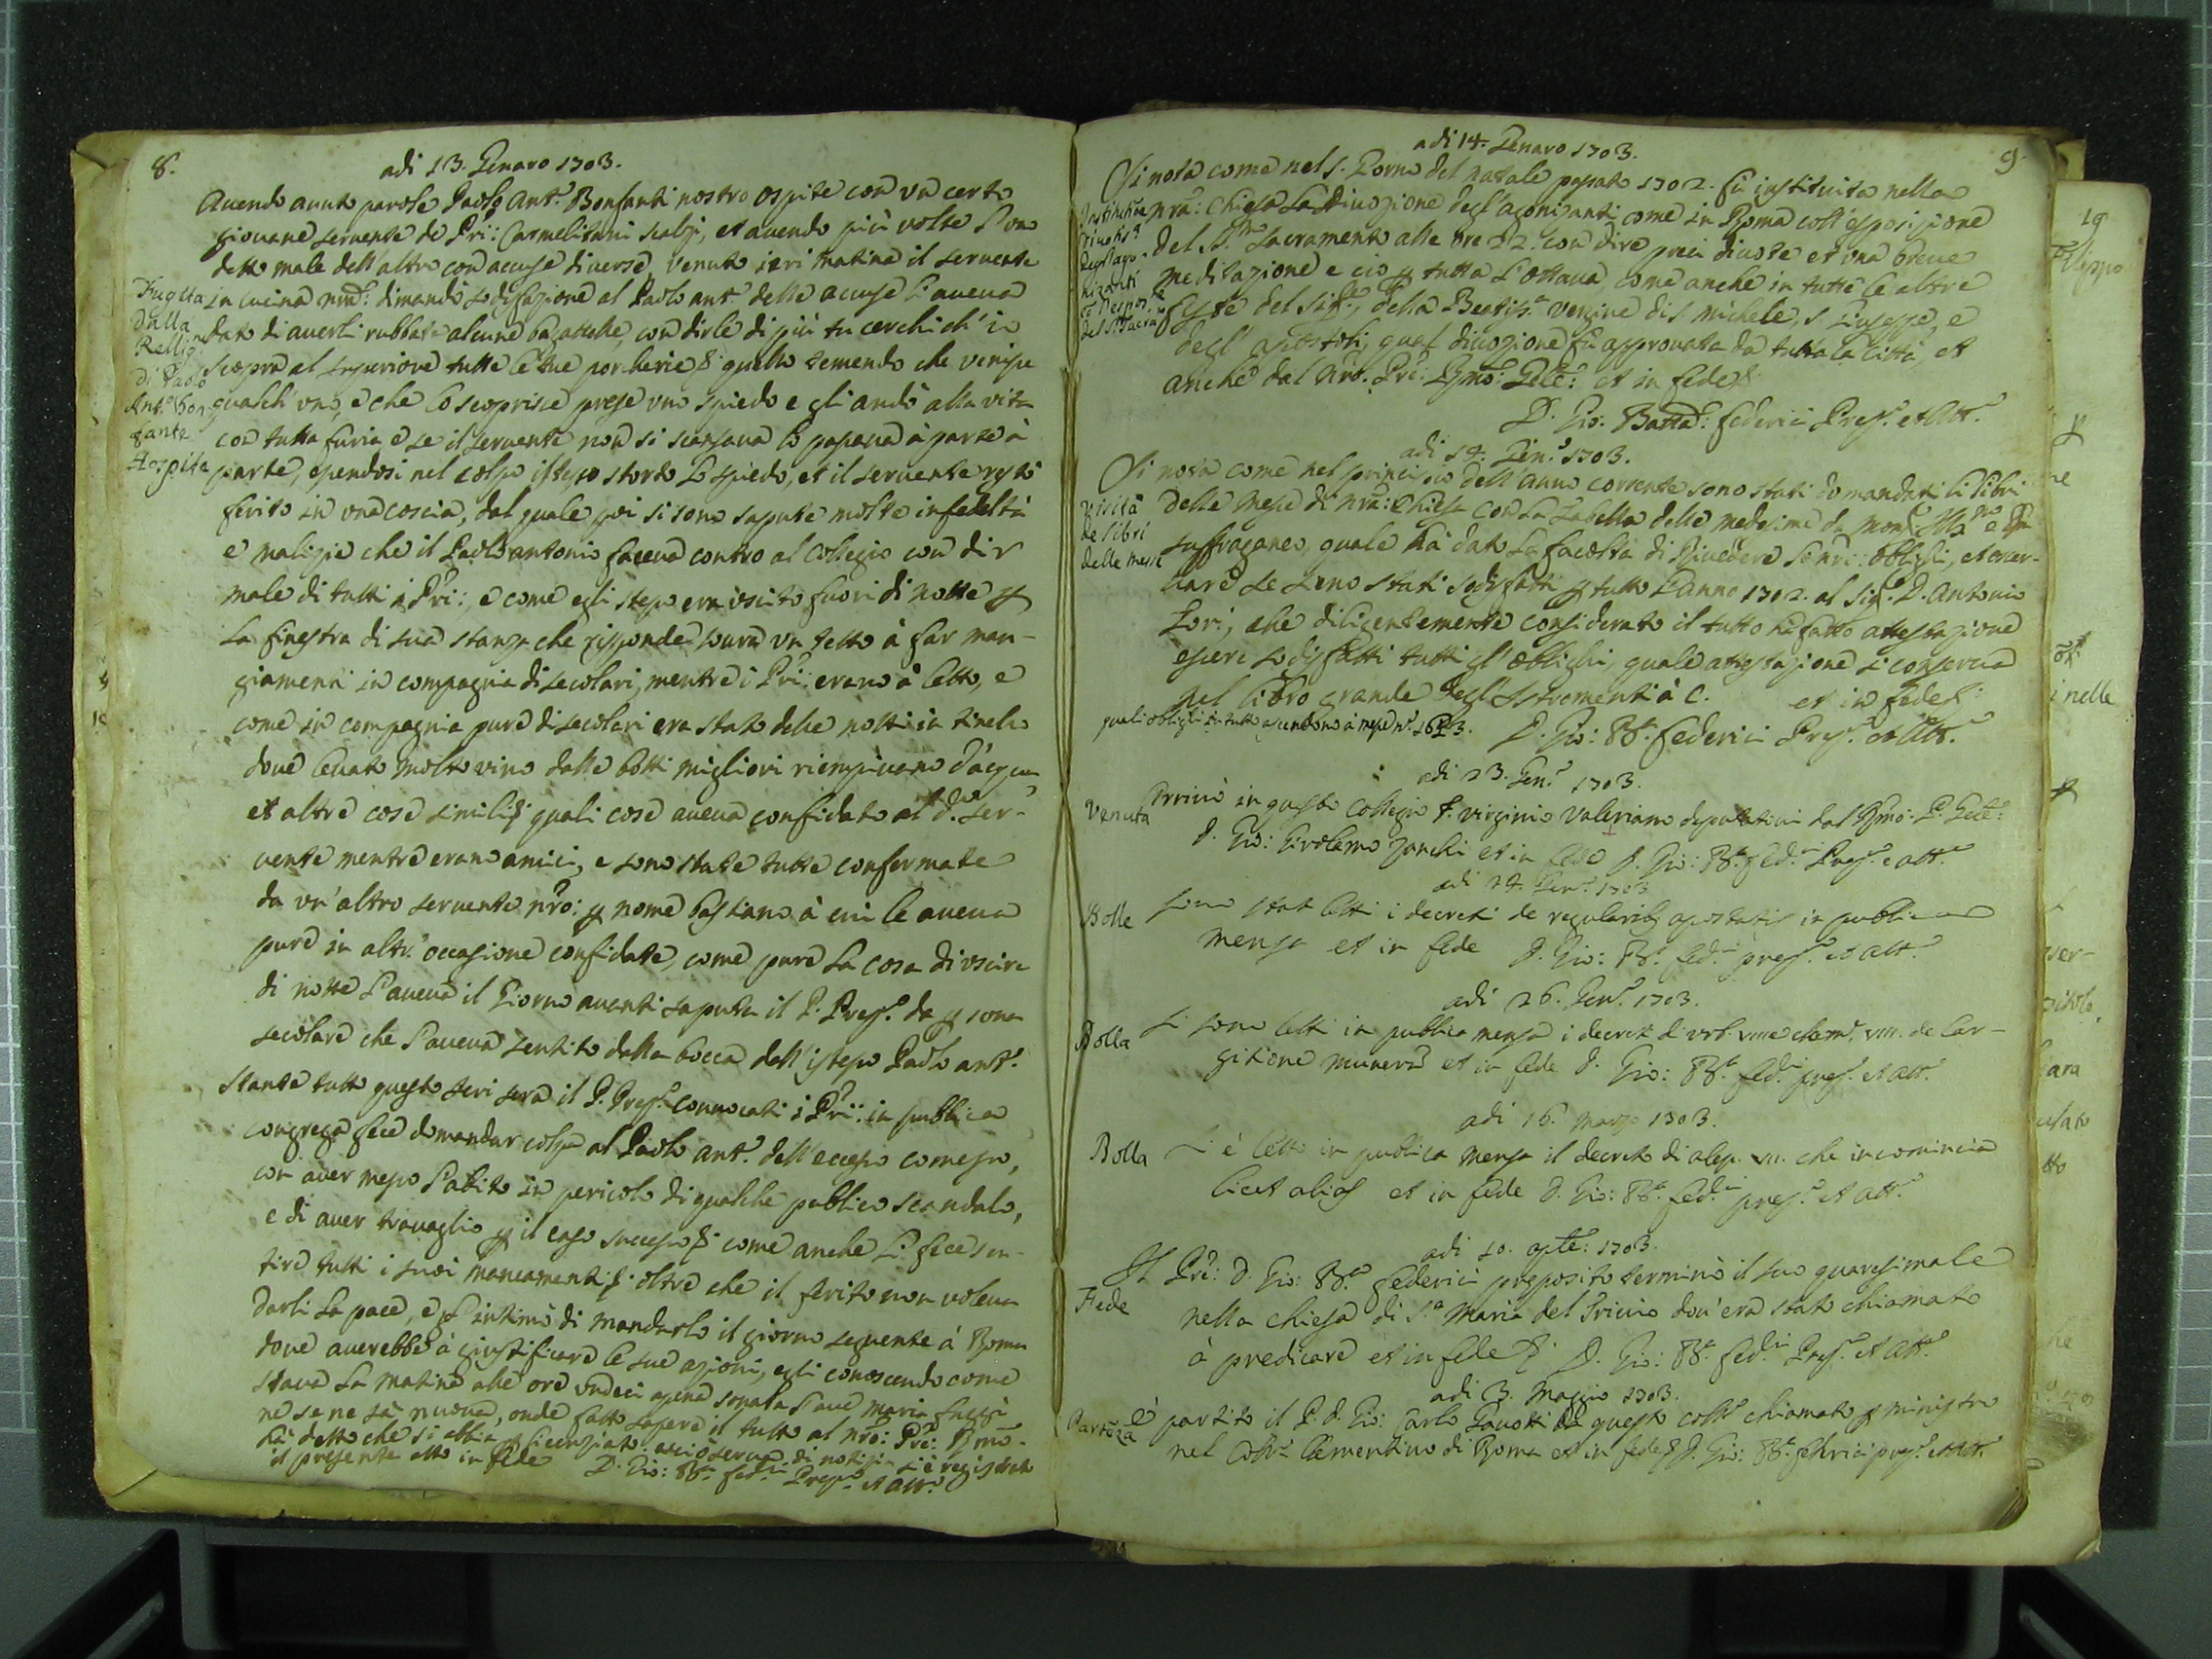 8.
adi 13. Genaro 1703.
Auendo auuto parole Paolo Ant.º Bonfanti nostro ospite con un certo
giouane seruente de Pri: Carmelitani scalzi, et auendo più volte l'uno
detto male dell'altro con accuse diuerse, venuto ieri matina il seruente
in cucina nrã: dimandò sodisfazione al Paolo ant.º delle accuse l'aueua
dato di auerli rubbate alcune bagattelle, con dirle di più tu cerchi ch'io
scopra al superiore tutte le tue porcherie & quello temendo che venisse
qualch'uno, e che lo scoprisse prese uno spiedo e gli andò alla vita
con tutta furia e se il seruente non si scansaua lo passaua à parte à
parte, essendosi nel colpo istesso storto lo spiedo, et il seruente restò
ferito in una coscia, dal quale poi si sono sapute molte infedeltà
e malizie che il Paolo antonio faceua contro al Collegio con dir
male di tutti i Pri:, e come egli stesso era uscito fuori di notte p
la finestra di sua stanza che risponde soura un tetto à far man-
giamenti in compagnia di secolari, mentre i Pri: erano à letto, e
come in compagnia pure di secolari era stato delle notti in tinello
doue leuato molto vino dalle botti migliori riempiuano d'acqua,
et altre cose simili & quali cose aueua confidato al d.º ser-
uente mentre erano amici, e sono state tutte confermate
da un'altro seruente nrõ: p nome Bastiano à cui le aueua
pure in altr'occasione confidate, come pure la cosa di uscire
di notte l'aueua il Giorno auanti saputa il P. Prep.º da p sona
secolare che l'aueua sentito dalla bocca dell'istesso Paolo ant.º
Stante tutto questo ieri sera il P. Prep.º conuocati i Pri: in publica
congrega fece domandar colpa al Paolo ant.º dell'eccesso comesso,
con auer messo l'abito in pericolo di qualche publico scandalo,
e di auer trauaglio p il caso successo & come anche li fece sen-
tire tutti i suoi mancamenti & oltre che il ferito non voleua
darli la pace, e l'intimò di mandarlo il giorno seguente à Roma
doue auerebbe à giustificare le sue azioni, egli conoscendo come
staua la matina alle ore undeci apena sonata l'aue maria fuggì
ne se ne sà nuoua, onde fatto sapere il tutto al nrõ: Pre: Rmo.
hà detto che si abbia p licenziato: acciò serua di notizia si è registrato
il presente atto in fede D. Gio: Bta. Fed.ci Prep.º et att.º
Fuggita
dalla
Rellig.e
di Paolo
Ant.º Bon
fanti
Hospite
9.
adi 14. Genaro 1703.
Si nota come nel s. Giorno del natale passato 1702. fu instituita nella
nrã: chiesa la diuozione degl'agonizanti come in Roma coll'esposizione
del SS.mo sacramento alle ore 22. con dire preci diuote et una breue
meditazione e ciò p tutta l'ottaua, come anche in tutte le altre
feste del Sig.re, della Beatis.a Vergine di s. michele, s. Giuseppe, e
degl'apostoli, qual diuozione fù approuata da tutta la Città, et
anche dal nrõ. Pre: Rmõ: Gele: et in fede &
D. Gio: Batta: Federici Prep.º et att.º
Institutione
Diuotio.e
degl'ago-
nizanti
co l'espos.e
del S. Sacra.to
adi 14. Gen.º 1703.
Si nota come nel principio dell'anno corrente sono stati domandati li libri
delle messe di nrã: chiesa con la tabella delle medesime da mons.r Ill.mo e
suffraganeo, quale hà dato la facoltà di Riuedere li nri: oblighi, et osser-
uare se sono stati sodisfatti p tutto l'anno 1702. al Sig.r D. Antonio
Tori, che diligentemente considerato il tutto hà fatto attestazione
essere sodisfatti tutti gl'oblighi, quale attestazione si conserua
nel libro grande degl'Istromenti à c. et in fede &
quali oblighi in tutto ascendono à messe nº. D. Gio: Bta. Federici Prep.º et att.º
Visita
de libri
delle messe
adi 23. Gen.º 1703.
Arriuò in questo Collegio F. virginio Valeriano deputatoui dal Rmo: P. Gele:
D. Gio: Girolamo Zanchi et in fede D. Gio: Bta. Fed.ci Prep.º e att.º
Venuta
adi 24. Gen.º 1703
sono stati letti i decreti de regularibs apostatis in publica
mensa et in fede D. Gio: Bta. Fed.ci prep.º et att.º
Bolle
adi 26. Gen.º 1703.
si sono letti in publica mensa i decreti d'Urb. viii e Clem. viii. de lar-
gitione munerũ et in fede D. Gio: Bta. Fed.ci prep.º et att.º
Bolla
adi 16. marzo 1703.
Si è letto in publica mensa il decreto di Aless. vii. che incomincia
licet alias et in fede D. Gio: Bta. Fed.ci prep.º et att.º
Bolla
adi 10. aple: 1703.
Il Pre: D. Gio: Bta. Federici preposito terminò il suo quaresimale
nella chiesa di S.a Maria del Triuio dou'era stato chiamato
à predicare et in fede & D. Gio: Bta. Fed.ci Prep.º et att.º
Fede
adi 3. Maggio 1703.
è partito il P. D. Gio: Carlo da questo coll.º chiamato p ministro
nel Coll.º Clementino di Roma et in fede & D. Gio: Bta. Federici prep.º et att.º
Partenza
19
Filippo
i nelle